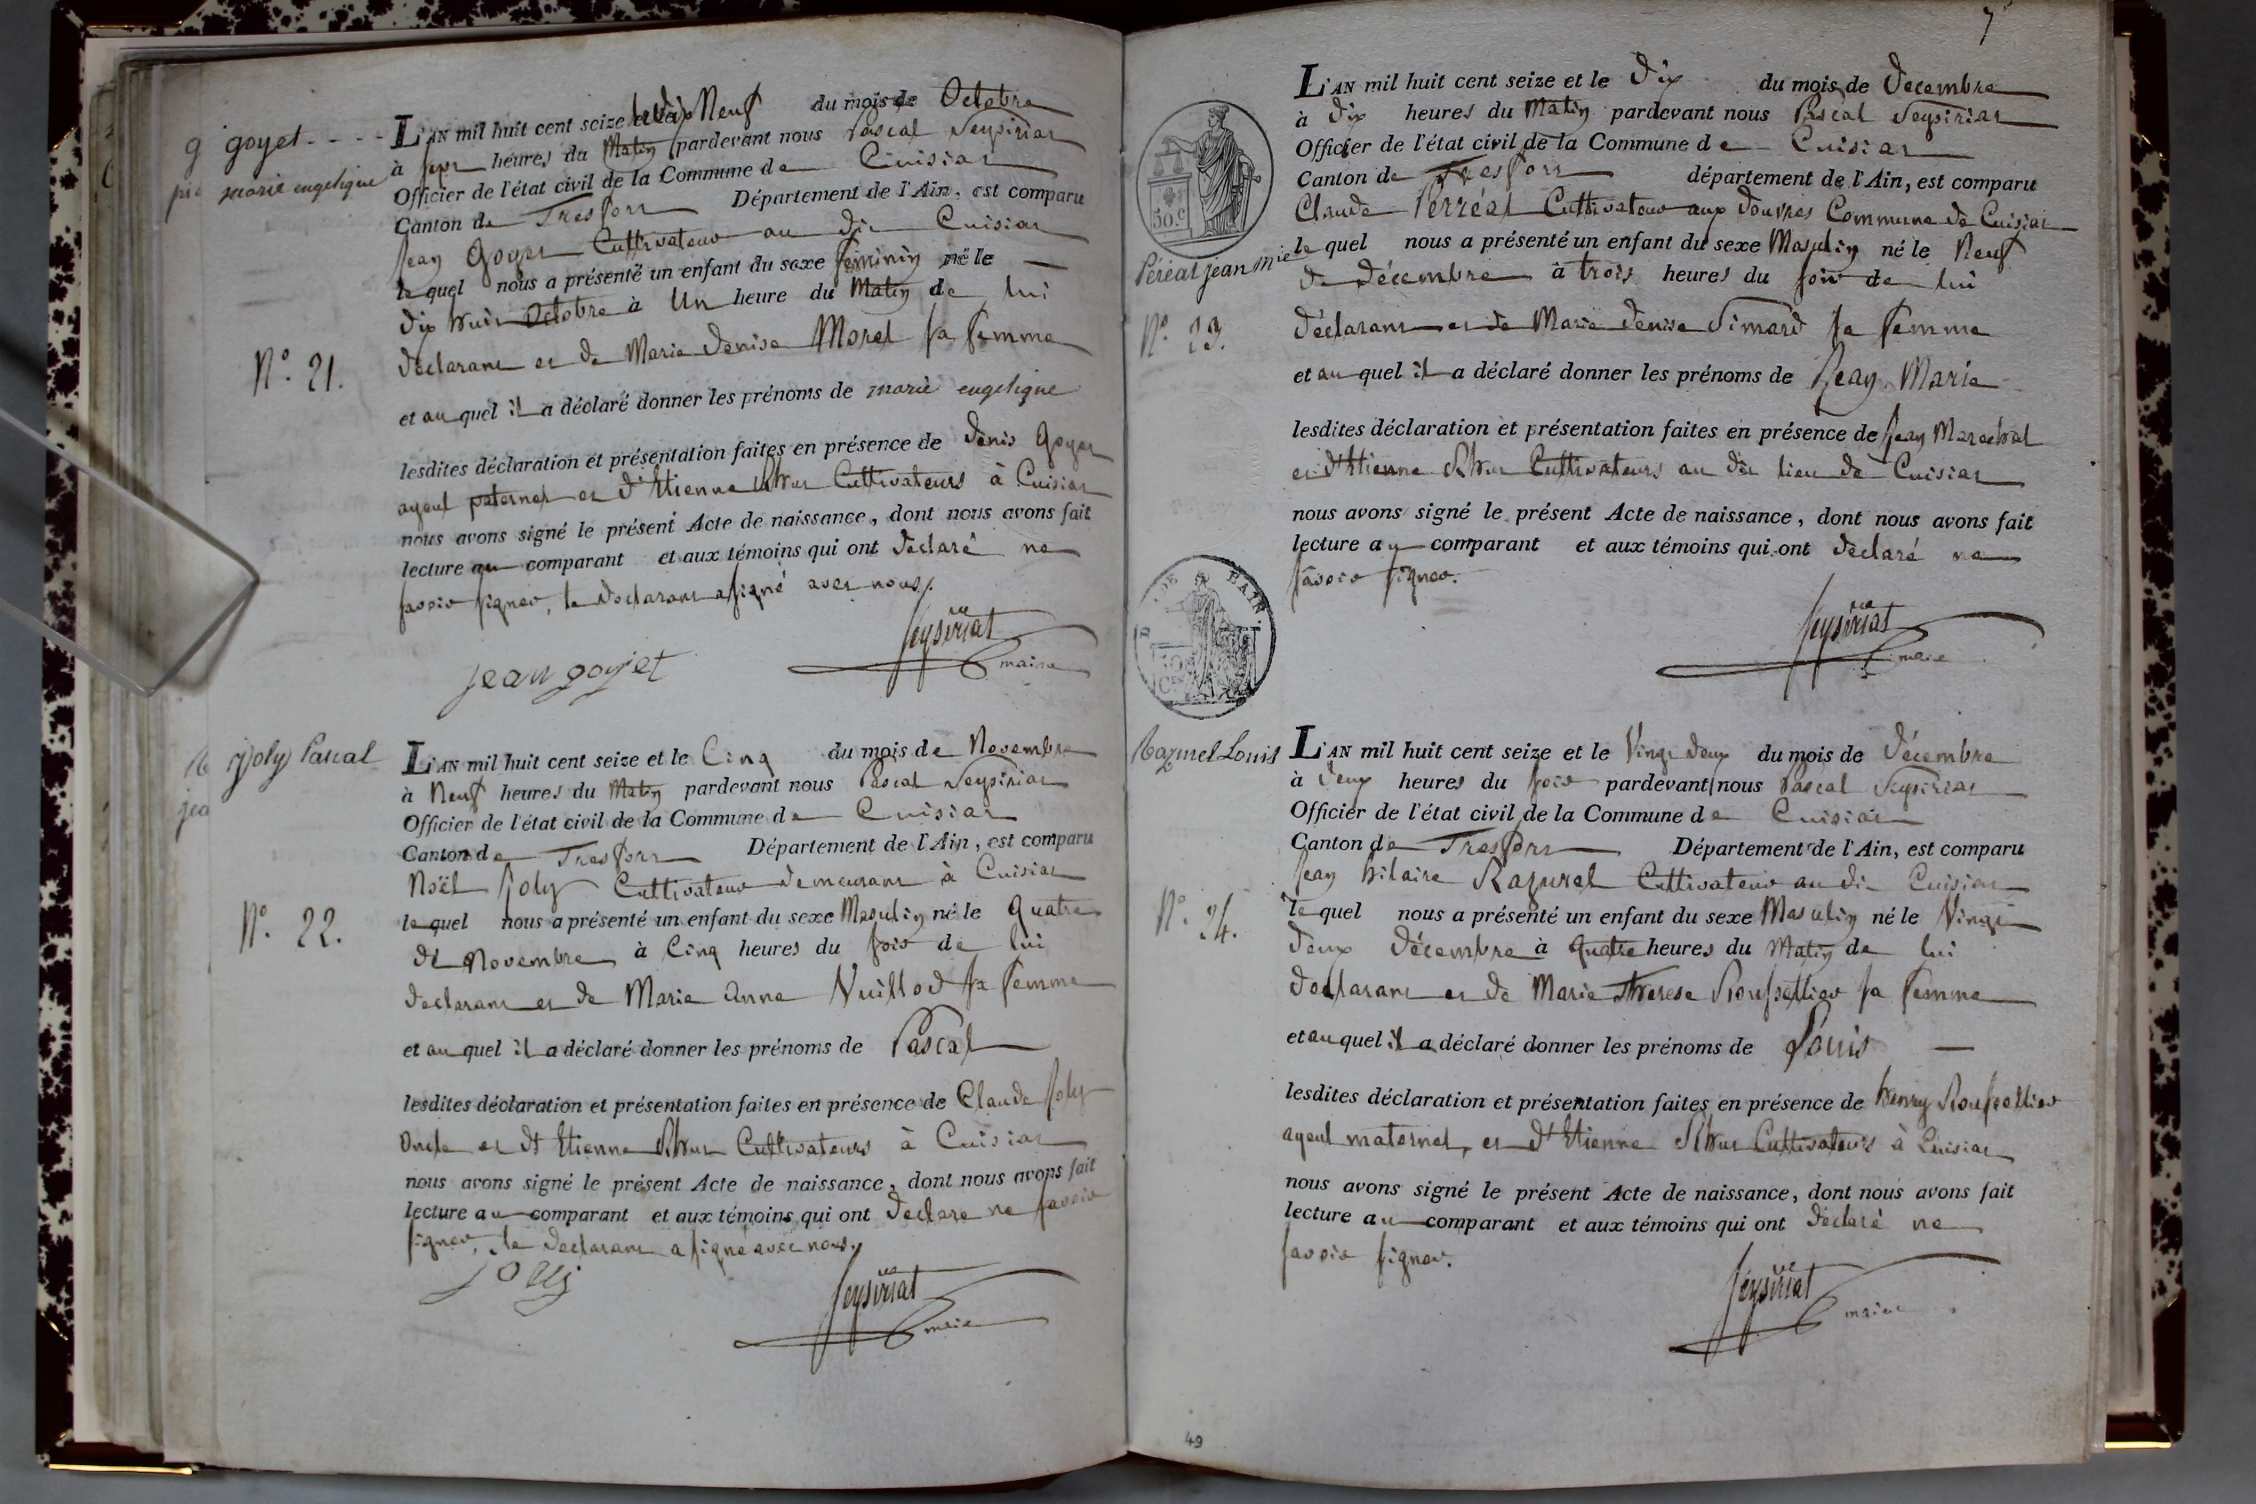 goyet
marie engelique
L'AN mil huit cent seize et le dix Neuf du mois de Octobre
à sept heures du Matin pardevant nous Pascal Seysiriat
Officier de l'état civil de la Commune de Cuisiat
Canton de Treffort Département de l'Ain, est comparu
Jean Goyet Cultivateur au dit Cuisiat
lequel nous a présenté un enfant du sexe féminin né le
dix huit Octobre à Un heure du Matin de lui
N.o 21.
déclarant et de Marie denise Morel sa femme
et auquel il a déclaré donner les prénoms de marie engelique
lesdites déclaration et présentation faites en présence de denis Goyet
ayeul paternel et d'Etienne Cultivateurs à Cuisiat
nous avons signé le présent Acte de naissance, dont nous avons fait
lecture au comparant et aux témoins qui ont declaré ne
savoir signer, le declarant a signé avec nous.
Seysiriat
maire
jean goyet
joly Pascal
L'AN mil huit cent seize et le Cinq du mois de Novembre
à Neuf heures du Matin pardevant nous Pascal Seysiriat
Officier de l'état civil de la Commune de Cuisiat
Canton de Treffort Département de l'Ain, est comparu
Noël Joly Cultivateur demeurant à Cuisiat
N.o 22.
lequel nous a présenté un enfant du sexe Masculin né le quatre
de Novembre à Cinq heures du soir de lui
declarant et de Marie anne Vuillod sa femme
et auquel il a déclaré donner les prénoms de Pascal
lesdites déclaration et présentation faites en présence de Claude Joly
Oncle et d'Etienne Cultivateurs à Cuisiat
nous avons signé le présent Acte de naissance, dont nous avons fait
lecture au comparant et aux témoins qui ont declare ne savoir
signer, le declarant a signé avec nous.
joly
Seysiriat
maire
7
L'AN mil huit cent seize et le dix du mois de decembre
à dix heures du Matin pardevant nous Pascal Seysiriat
Officier de l'état civil de la Commune de Cuisiat
Canton de Treffort département de l'Ain, est comparu
Claude Perréal Cultivateur aux douvres Commune de Cuisiat
50.c
Péréal jean mie
lequel nous a présenté un enfant du sexe Masculin né le Neuf
de décembre à trois heures du soir de lui
N.o 23.
déclarant et de Marie denise Simard sa femme
et auquel il a déclaré donner les prénoms de Jean Marie
lesdites déclaration et présentation faites en présence de Jean Marechal
et d'Etienne Cultivateurs au dit lieu de Cuisiat
nous avons signé le présent Acte de naissance, dont nous avons fait
lecture au comparant et aux témoins qui ont declaré ne
savoir signer.
Seysiriat
maire
Razurel Louis
L'AN mil huit cent seize et le Vingt deux du mois de décembre
à deux heures du soir pardevant nous Pascal Seysiriat
Officier de l'état civil de la Commune de Cuisiat
Canton de Treffort Département de l'Ain, est comparu
Jean hilaire Razurel Cultivateur au dit Cuisiat
N.o 24.
lequel nous a présenté un enfant du sexe Masculin né le Vingt
deux décembre à quatre heures du Matin de lui
declarant et de Marie Therese Roussellier sa femme
et auquel il a déclaré donner les prénoms de Louis
lesdites déclaration et présentation faites en présence de henry Roussellier
ayeul maternel, et d'Etienne Cultivateurs à Cuisiat
nous avons signé le présent Acte de naissance, dont nous avons fait
lecture au comparant et aux témoins qui ont declaré ne
savoir signer.
Seysiriat
maire
49